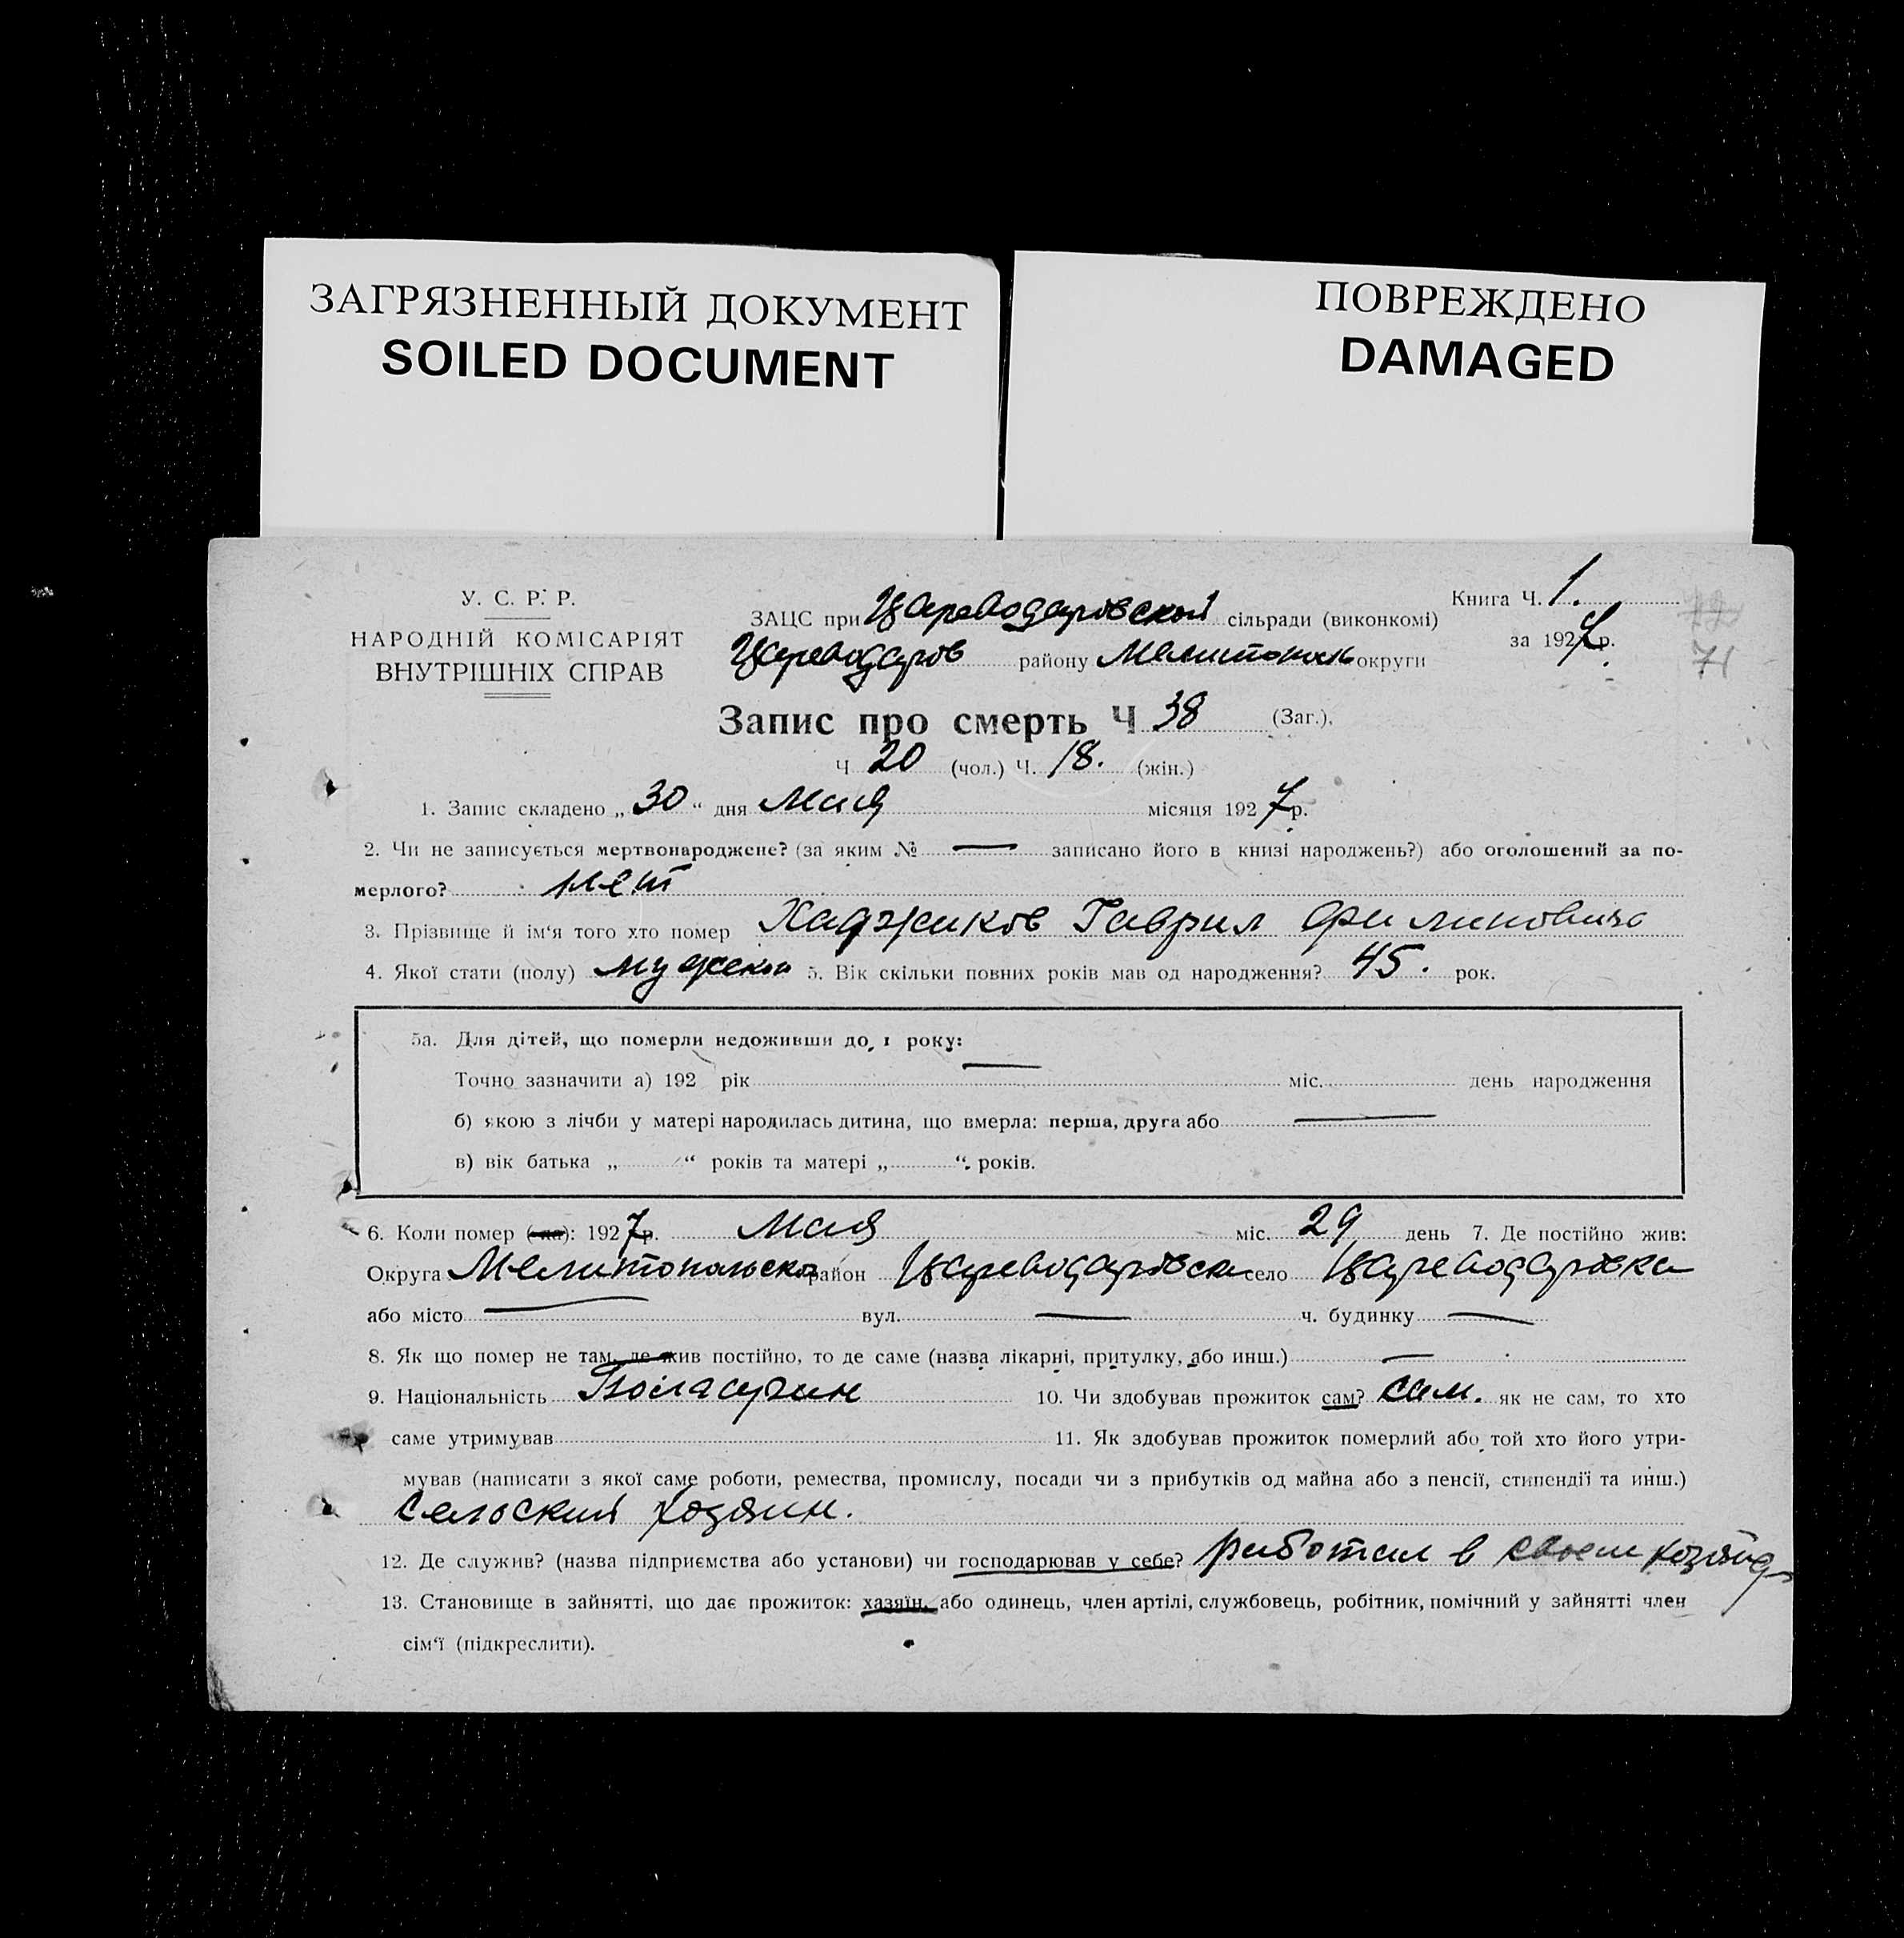 ЗАГРЯЗНЕННЫЙ ДОКУМЕНТ
SOILED DOCUMENT
ПОВРЕЖДЕНО
DAMAGED
У. С. Р. Р.
НАРОДНІЙ КОМІСАРІЯТ
ВНУТРІШНІХ СПРАВ
ЗАЦС при Цареводаровской сільради (виконкомі)
Цареводаров району Мелитополь округи
Книга Ч. 1.
за 1927 р.
71
Запис про смерть Ч 38 (Заг.),
Ч 20 (чол.) Ч. 18. (жін.)
1. Запис складено „ 30 “ дня Мая місяця 1927 р.
2. Чи не записується мертвонароджене? (за яким № — записано його в книзі народжень?) або оголошений за по-
мерлого? нет
3. Прізвище й ім‘я того хто помер Хаджиков Гаврил Филипович
4. Якої стати (полу) мужской 5. Вік скільки повних років мав од народження? 45. рок.
5а. Для дітей, що померли недоживши до 1 року:
Точно зазначити а) 192 рік міс. день народження
б) якою з лічби у матері народилась дитина, що вмерла: перша, друга або —
в) вік батька „ “ років та матері „ “ років.
6. Коли помер (-ла): 1927 р. Мая міс. 29 день 7. Де постійно жив:
Округа Мелитопольско район Цареводаровск село Цареводаровка
або місто — вул. — ч. будинку —
8. Як що помер не там, де жив постійно, то де саме (назва лікарні, притулку, або инш.) —
9. Національність 10. Чи здобував прожиток сам? Сам. як не сам, то хто
саме утримував 11. Як здобував прожиток померлий або той хто його утри-
мував (написати з якої саме роботи, ремества, промислу, посади чи з прибутків од майна або з пенсії, стипендії та инш.)
Сельский хозяин.
12. Де служив? (назва підприємства або установи) чи господарював у себе? работал в своем
13. Становище в зайнятті, що дає прожиток: хазяїн, або одинець, член артілі, службовець, робітник, помічний у зайнятті член
сім‘ї (підкреслити).